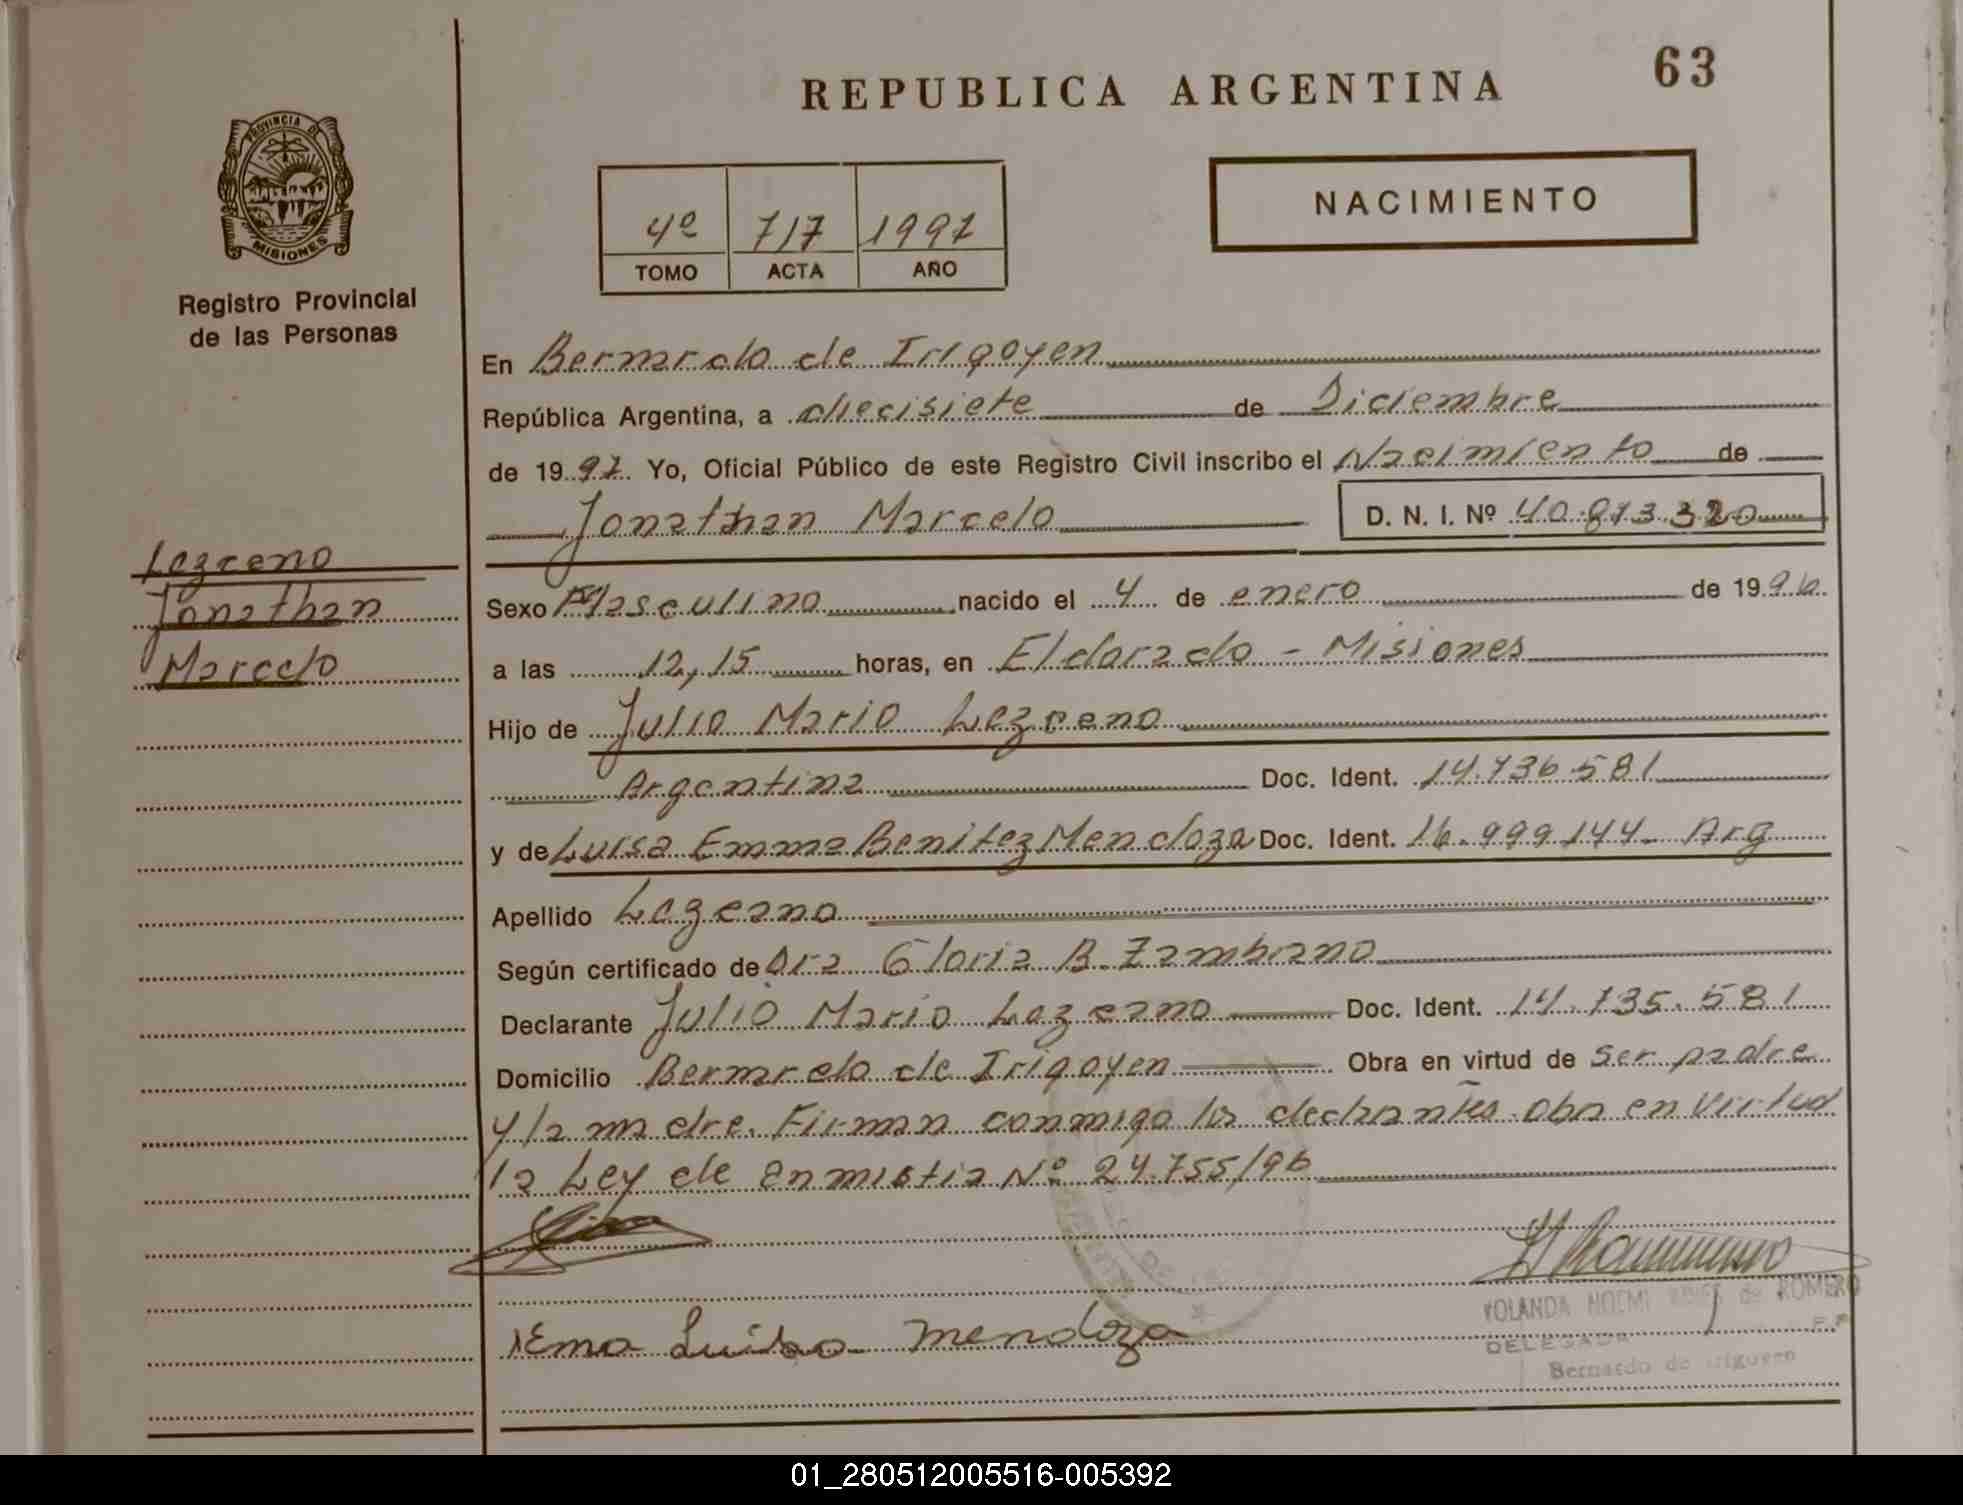 63
REPUBLICA ARGENTINA
PROVINCIA DE
MISIONES
Registro Provincial
de las Personas
NACIMIENTO
4º 717 1997
TOMO ACTA AÑO
En Bernardo de Irigoyen
República Argentina, a diecisiete de Diciembre
de 1997 Yo, Oficial Público de este Registro Civil inscribo el Nacimiento de
Jonathan Marcelo D. N. I. Nº 40.813.320
Lezcano
Jonathan
Marcelo
Sexo Masculino nacido el 4 de enero de 1996
a las 12,15 horas, en Eldorado - Misiones
Hijo de Julio Mario Lezcano
Argentina Doc. Ident. 14.736.581
y de Luisa Emma Benitez Mendoza Doc. Ident. 16.999.144- Arg
Apellido Lezcano
Según certificado de Dra Gloria B. Zambrano
Declarante Julio Mario Lezcano Doc. Ident. 14.735.581
Domicilio Bernardo de Irigoyen Obra en virtud de ser padre
y la madre. Firman conmigo los declarantes. obra en virtud
la Ley de anmistia Nº 24.755/96
Ema Luisa Mendoza
YOLANDA NOEMI de ROMERO
DELEGADA
Bernardo de Irigoyen
01_280512005516-005392